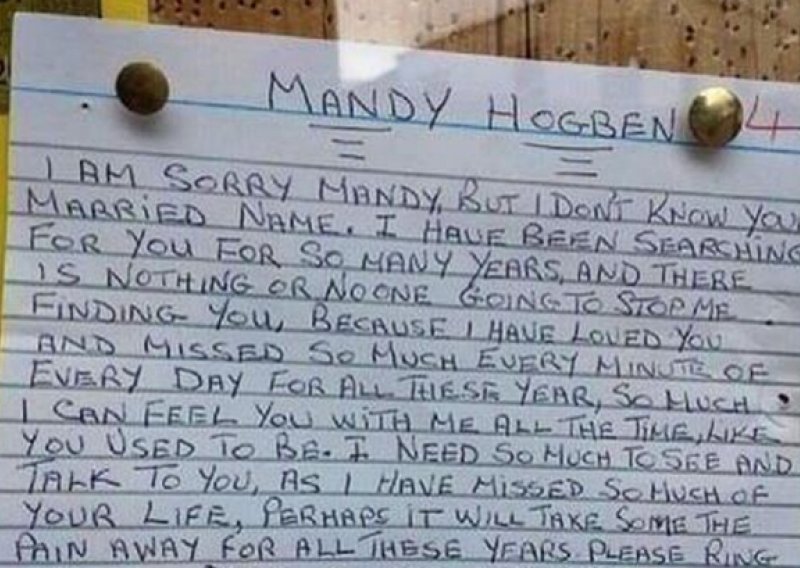 MANDY HOGBEN 4
I AM SORRY MANDY, BUT I DON'T KNOW YOU
MARRIED NAME. I HAVE BEEN SEARCHING
FOR YOU FOR SO MANY YEARS, AND THERE
IS NOTHING OR NOONE GOING TO STOP ME
FINDING YOU, BECAUSE I HAVE LOVED YOU
AND MISSED SO MUCH EVERY MINUTE OF
EVERY DAY FOR ALL THESE YEAR, SO MUCH
I CAN FEEL YOU WITH ME ALL THE TIME, LIKE
YOU USED TO BE. I NEED SO MUCH TO SEE AND
TALK TO YOU, AS I HAVE MISSED SO MUCH OF
YOUR LIFE, PERHAPS IT WILL TAKE SOME THE
PAIN AWAY FOR ALL THESE YEARS. PLEASE RING